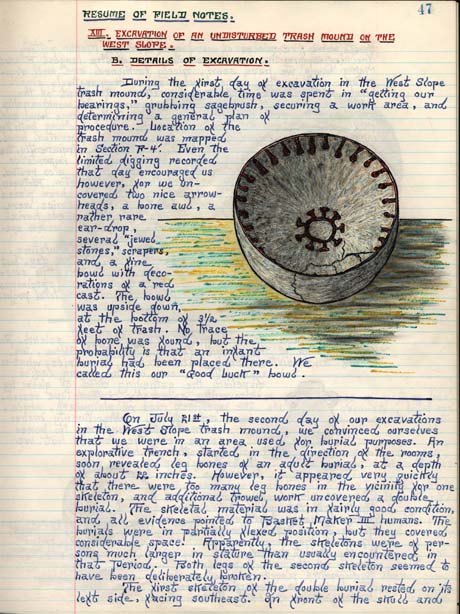 47
RESUME OF FIELD NOTES.
XIII. EXCAVATION OF AN UNDISTURBED TRASH MOUND ON THE
WEST SLOPE.
B. DETAILS OF EXCAVATION.
During the first day of excavation in the West Slope
trash mound, considerable time was spent in "getting our
bearings," grubbing sagebrush, securing a work area, and
determining a general plan of
procedure. Location of the
trash mound was mapped
in Section F-4. Even the
limited digging recorded
that day encouraged us
however, for we un-
covered two nice arrow-
heads, a bone awl, a
rather rare
ear-drop,
several "jewel
stones," scrapers,
and, a fine
bowl with deco-
rations of a red
cast. The bowl
was upside down,
at the bottom of 3 1/2
feet of trash. No trace
of bone was found, but the
probability is that an infant
burial had been placed there. We
called this our "Good Luck" bowl.
On July 21st, the second day of our excavations
in the West Slope trash mound, we convinced ourselves
that we were in an area used for burial purposes. An
explorative trench, started in the direction of the rooms,
soon revealed leg bones of an adult burial, at a depth
of about 22 inches. However, it appeared very quickly
that there were too many leg bones in the vicinity for one
skeleton, and additional trowel work uncovered a double
burial. The skeletal material was in fairly good condition,
and all evidence pointed to Basket Maker III humans. The
burials were in partially flexed position, but they covered
considerable space. Apparently, the skeletons were of per-
sons much larger in stature than usually encountered in
that period. Both legs of the second skeleton seemed to
have been deliberately broken.
The first skeleton of the double burial rested on its
left side, facing southeast. In front of the skull and